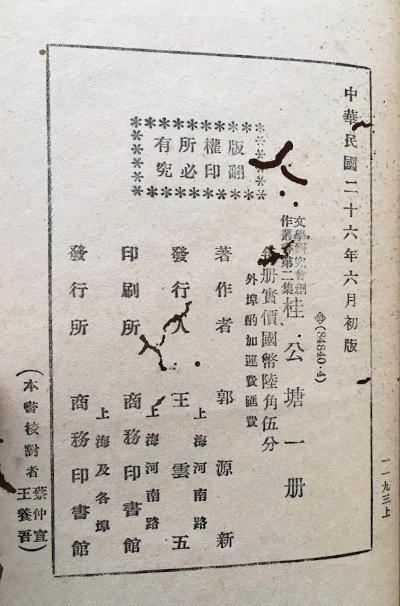 中華民國二十六年六月初版
(84840·4)
文學研究會創
作叢書第二集
桂公塘一册
每册實價國幣陸角伍分
外埠酌加運費匯費
版權所有
翻印必究
著作者 郭源新
上海河南路
發行人 王雲五
上海河南路
印刷所 商務印書館
上海及各埠
發行所 商務印書館
(本書校對者 蔡仲宣 王養吾)
一一九三上